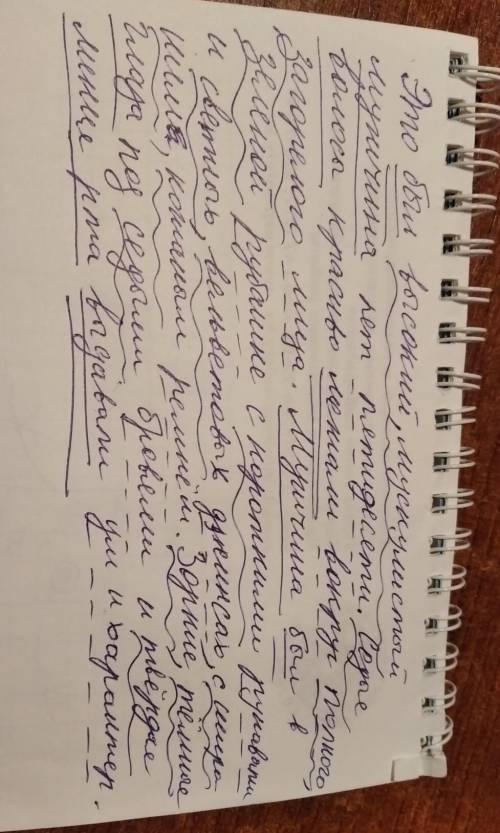 Это был высокий, мускулистый
мужчина лет петидесети. Серые
волосы красиво лежали вокруг полного,
загорелого лица. Мужчина был в
зеленой рубашке с короткими рукавами
и светлых вельветовых джинсах, с широ
ким, кожаным ремнем. Зоркие, темные
глаза под седыми бровями и твёрдые
линие рта выдавали ум и характер.